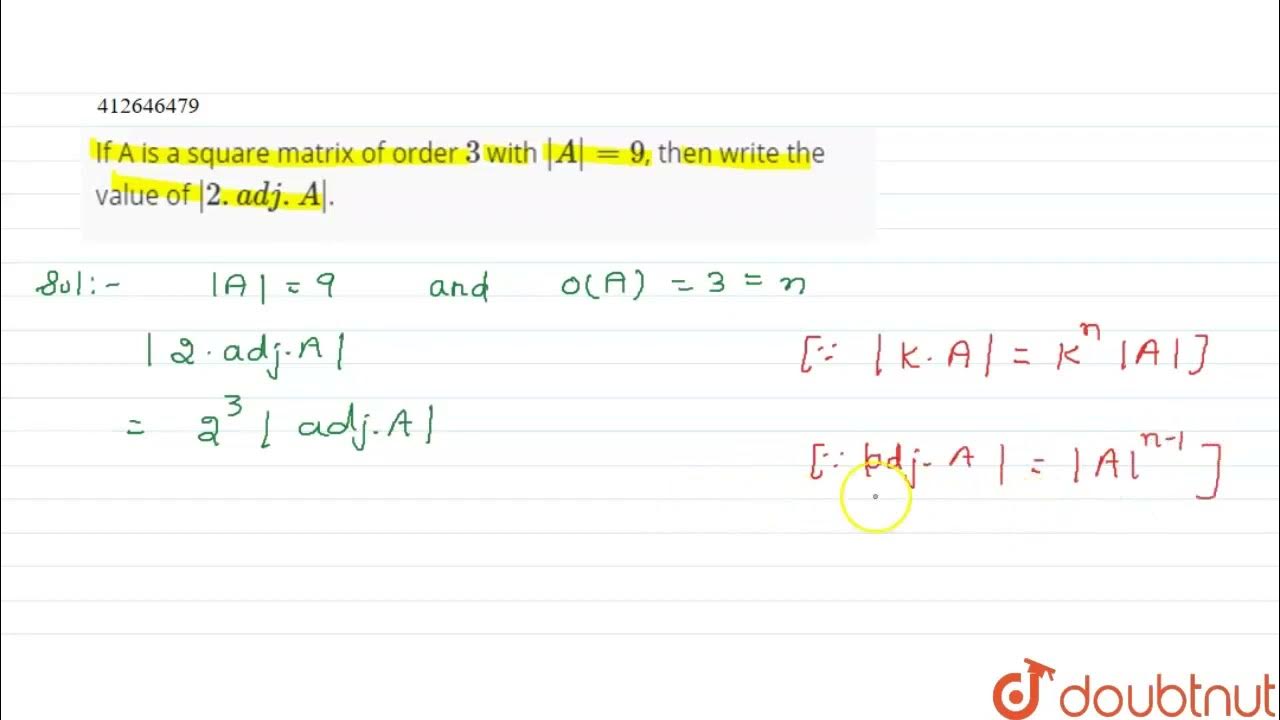 412646479
If A is a square matrix of order 3 with |A| = 9, then write the
value of |2. adj. A|.
Sol:- |A| = 9 and O(A) = 3 = n
|2.adj.A| [∵ |K.A| = Kⁿ |A|]
= 2³ |adj.A|
[∵ |adj.A| = |A|ⁿ⁻¹]
doubtnut